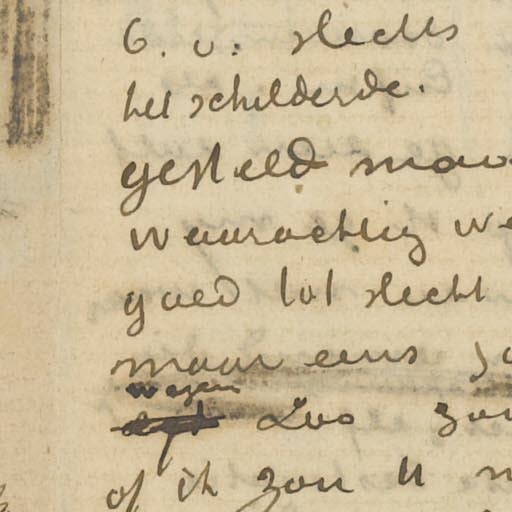 b.v. slechts
het schilderde.
gesteld maar
waarachtig
goed tot slecht
maar eens
wezen
Zoo zou
of ik zou U